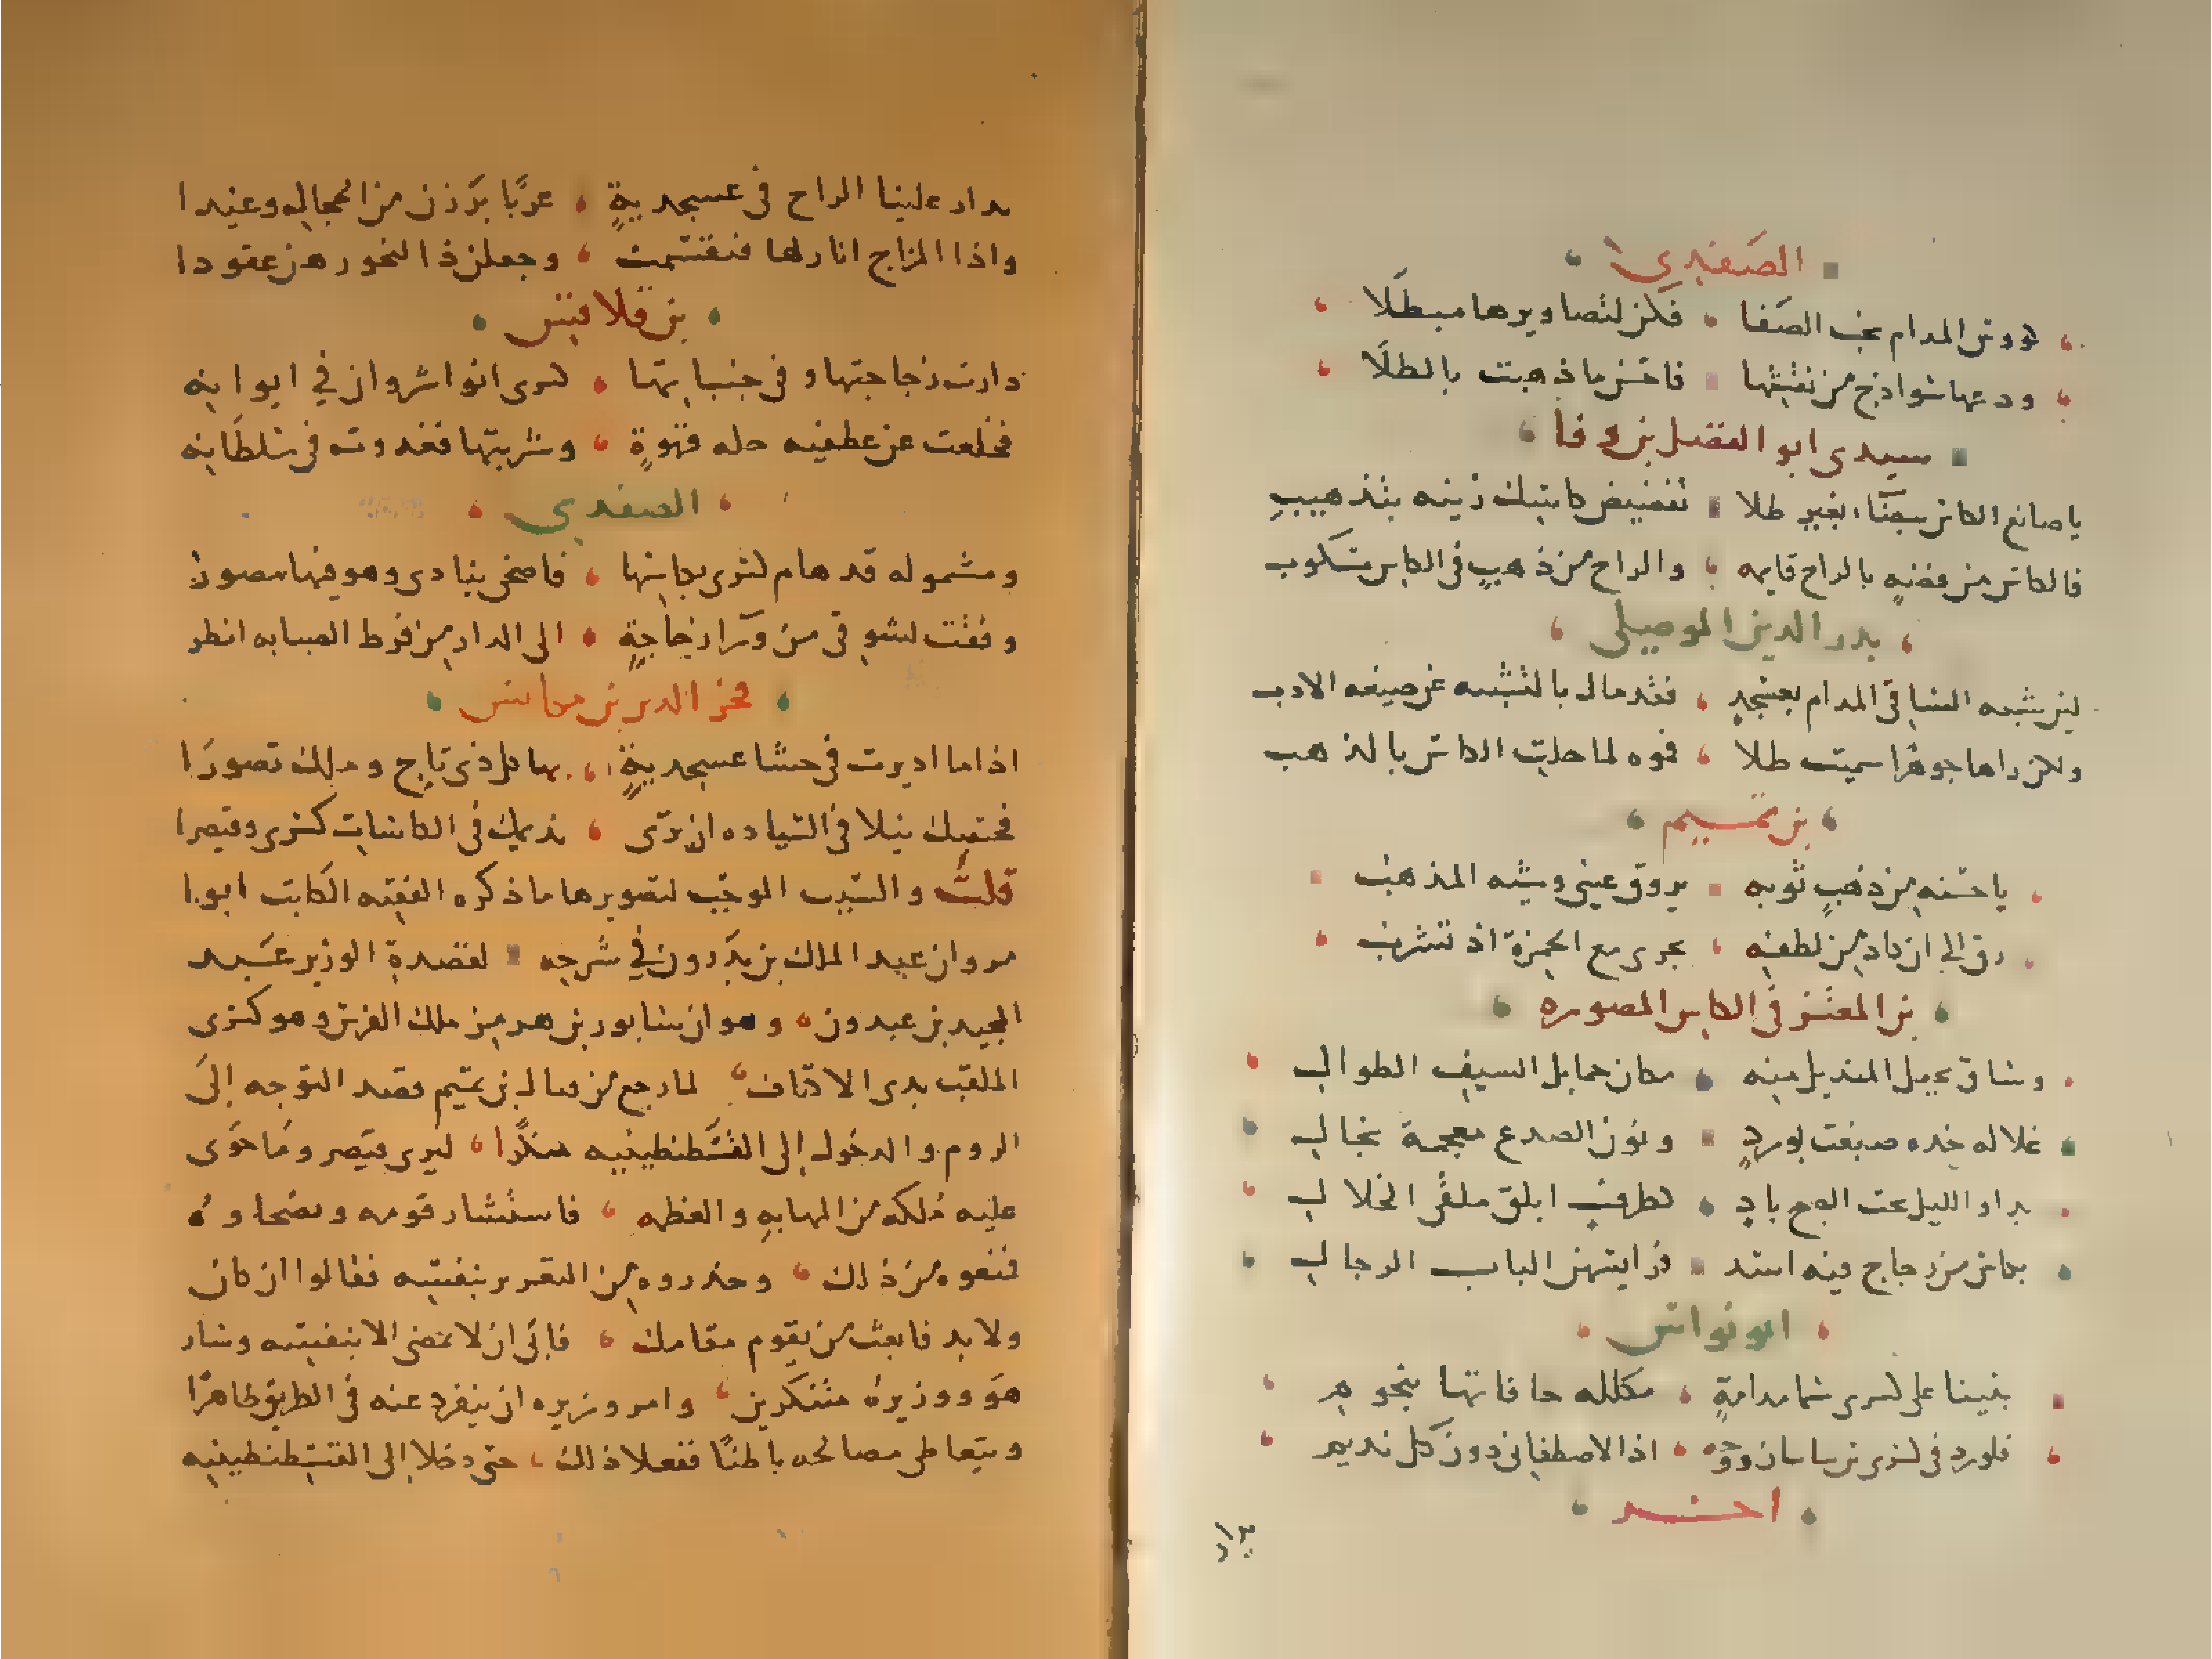 الصفدي
كووس المدام تحب الصفا فكن لتصاويرها مبطلا
ودعها سواذج من نقشها فاحسن ما ذهبت بالطلا
سيدي ابو الفضل بن وفا
يا صانع الكاس بغير طلا تفضيض كاسك زينه بتذهيب
فالكاس من فضة بالراح قايمه والراح من ذهب في الكاس مسكوب
بدر الدين الموصلي
لين شبه الساقي المدام بعسجد فقد مال بالتشبيه عن صيغه الادب
ولكن راها جوهرا سميت طلا فموه لما حلت الكاس بالذهب
بن تميم
يا حسنه من ذهب ثوبه يروق عيني وشيه المذهب
رق الى ان كاد من لطفه يجري مع الخمرة اذ تشرب
بن المعتز في الكاس المصوره
وساق يجعل المنديل منه مكان حمايل السيف الطوال
غلاله خده صبغت بورد ونون الصدغ معجمة بخال
بدا والليل تحت الصبح باد كطرف ابلق ملقى الجلال
بكاس من زجاج فيه اسد فرايسهن الباب الرجال
ابو نواس
بنينا على كسرى سما مدامة مكلله حافاتها بنجوم
فلو رد في كسرى بن ساسان روحه اذا لاصطفاني دون كل نديم
اخر
يدار علينا الراح في عسجدية عربا برزن من الحجال وغيدا
واذا المزاج انارها فتقسمت وجعلن ذا لنحورهن عقودا
بن قلاقس
دارت زجاجتها وفي جنباتها كسرى انوا شروان في ايوانه
فخلعت عن عطفيه حله قهوة وشربتها فغدوت في سلطانه
الصفدي
ومشموله قد هام كسرى بكاسها فاضحى ينادي وهو فيها مصور
وقفت لشوقي من ورا زجاجة الى الدار من فرط الصبابه انظر
فخر الدين بن مكانس
اذا ما اديرت في حشا عسجدية بها كل ذي تاج وملك تصورا
فحسبك نيلا في السياده ان ترى نديمك في الكاسات كسرى وقيصرا
قلت والسبب الموجب لتصويرها ما ذكره الفقيه الكاتب ابو
مروان عبد الملك بن بدرون في شرحه لقصدة الوزير عبد
المجيد بن عبدون وهو ان سابور بن هرمز ملك الفرس وهو كسرى
الملقب بذي الاكتاف لما رجع من قتال بن تميم قصد التوجه إلى
الروم والدخول إلى القسطنطينيه متنكرا ليرى قيصر وما حوى
عليه ملكه من المهابه والعظمه فاستشار قومه ونصحاوه
فمنعوه من ذلك وحذروه من التغرير بنفسه فقالوا ان كان
ولا بد فابعث من يقوم مقامك فابى ان لا يمضي الا بنفسه وسار
هو ووزيره متنكرين وامر وزيره ان ينفرد عنه في الطريق ظاهرا
ويتعاطى مصالحه باطنا ففعلا ذلك حتى دخلا إلى القسطنطينيه